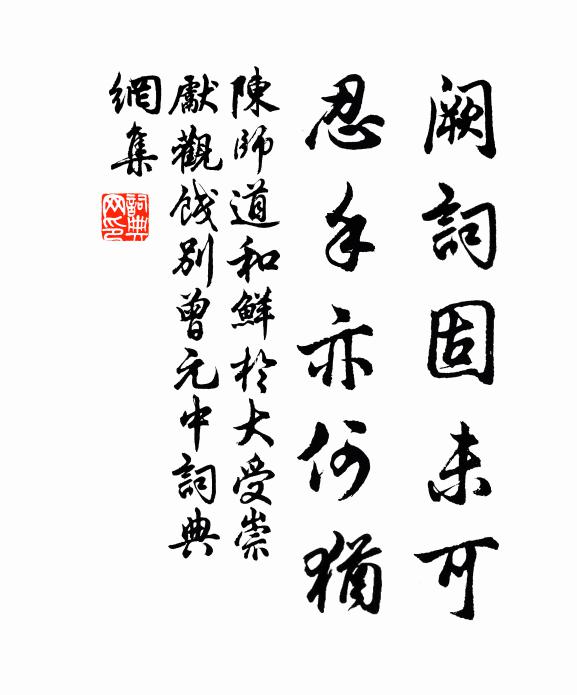 闕詞固未可
忍手亦何猶
陳師道和鮮於大受崇
獻觀餞別曾元中詞典
網集
詞典網印